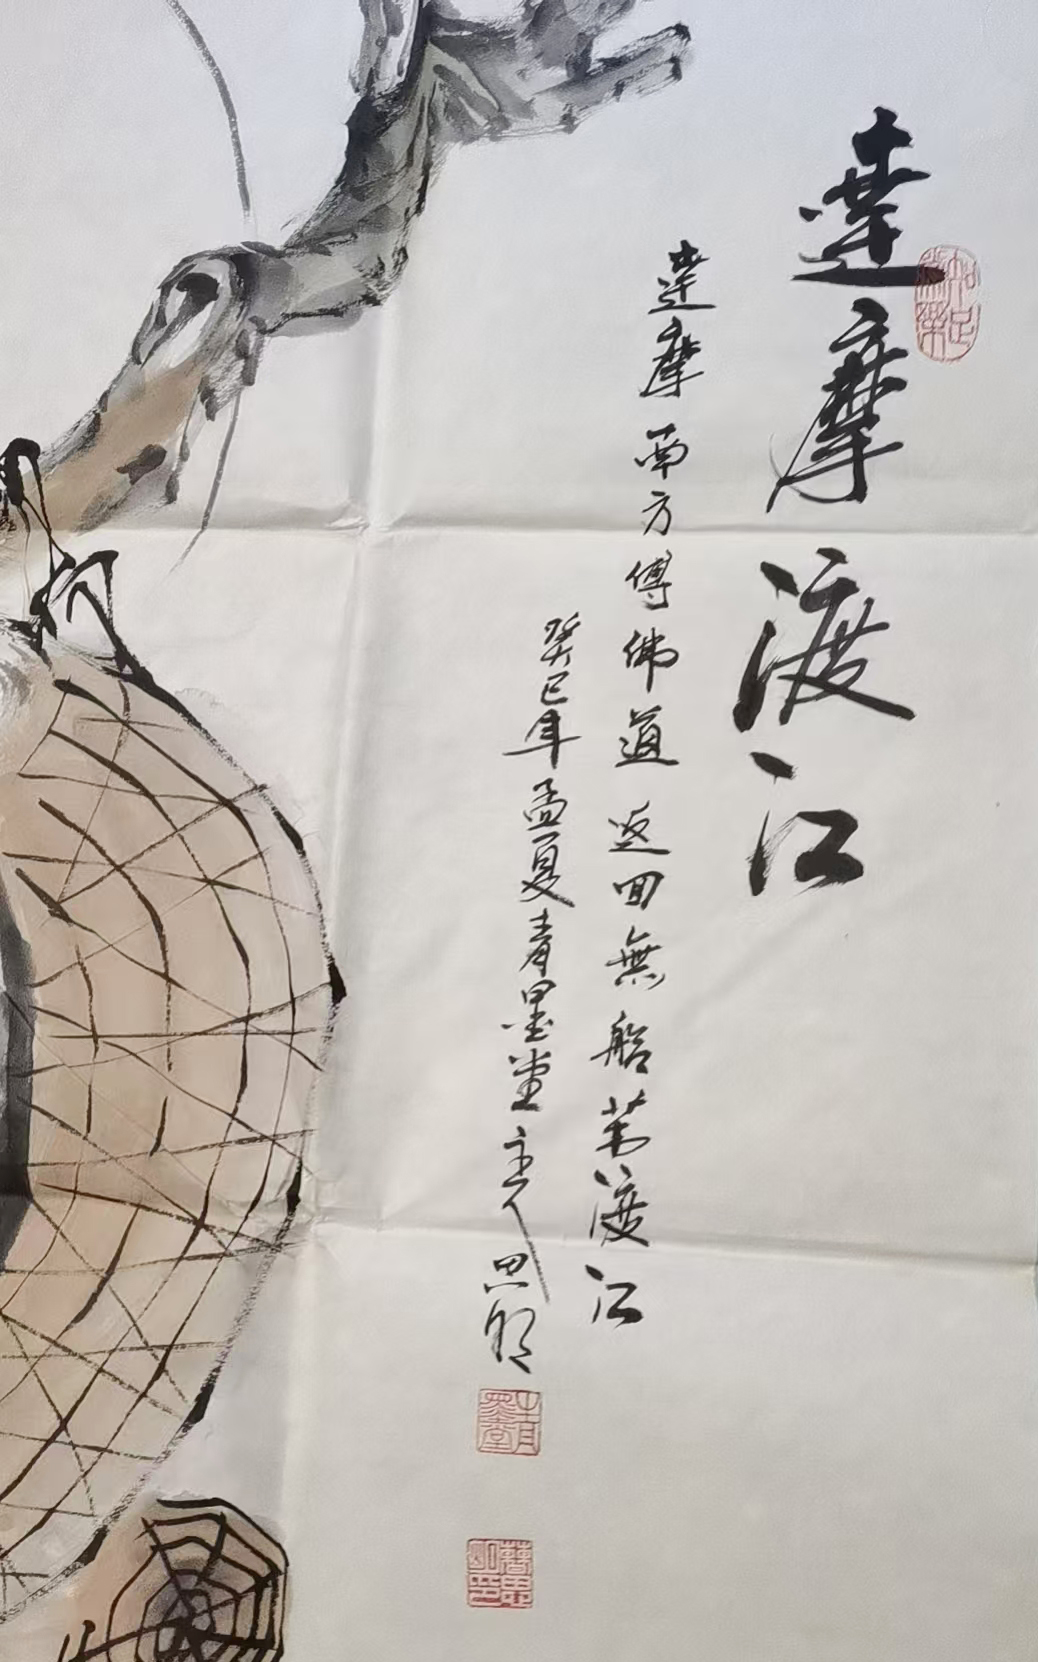 達摩渡江
知足常樂
達摩面方傅佛道返回無船苇渡江
癸巳年孟夏青墨堂主人思明
青墨堂